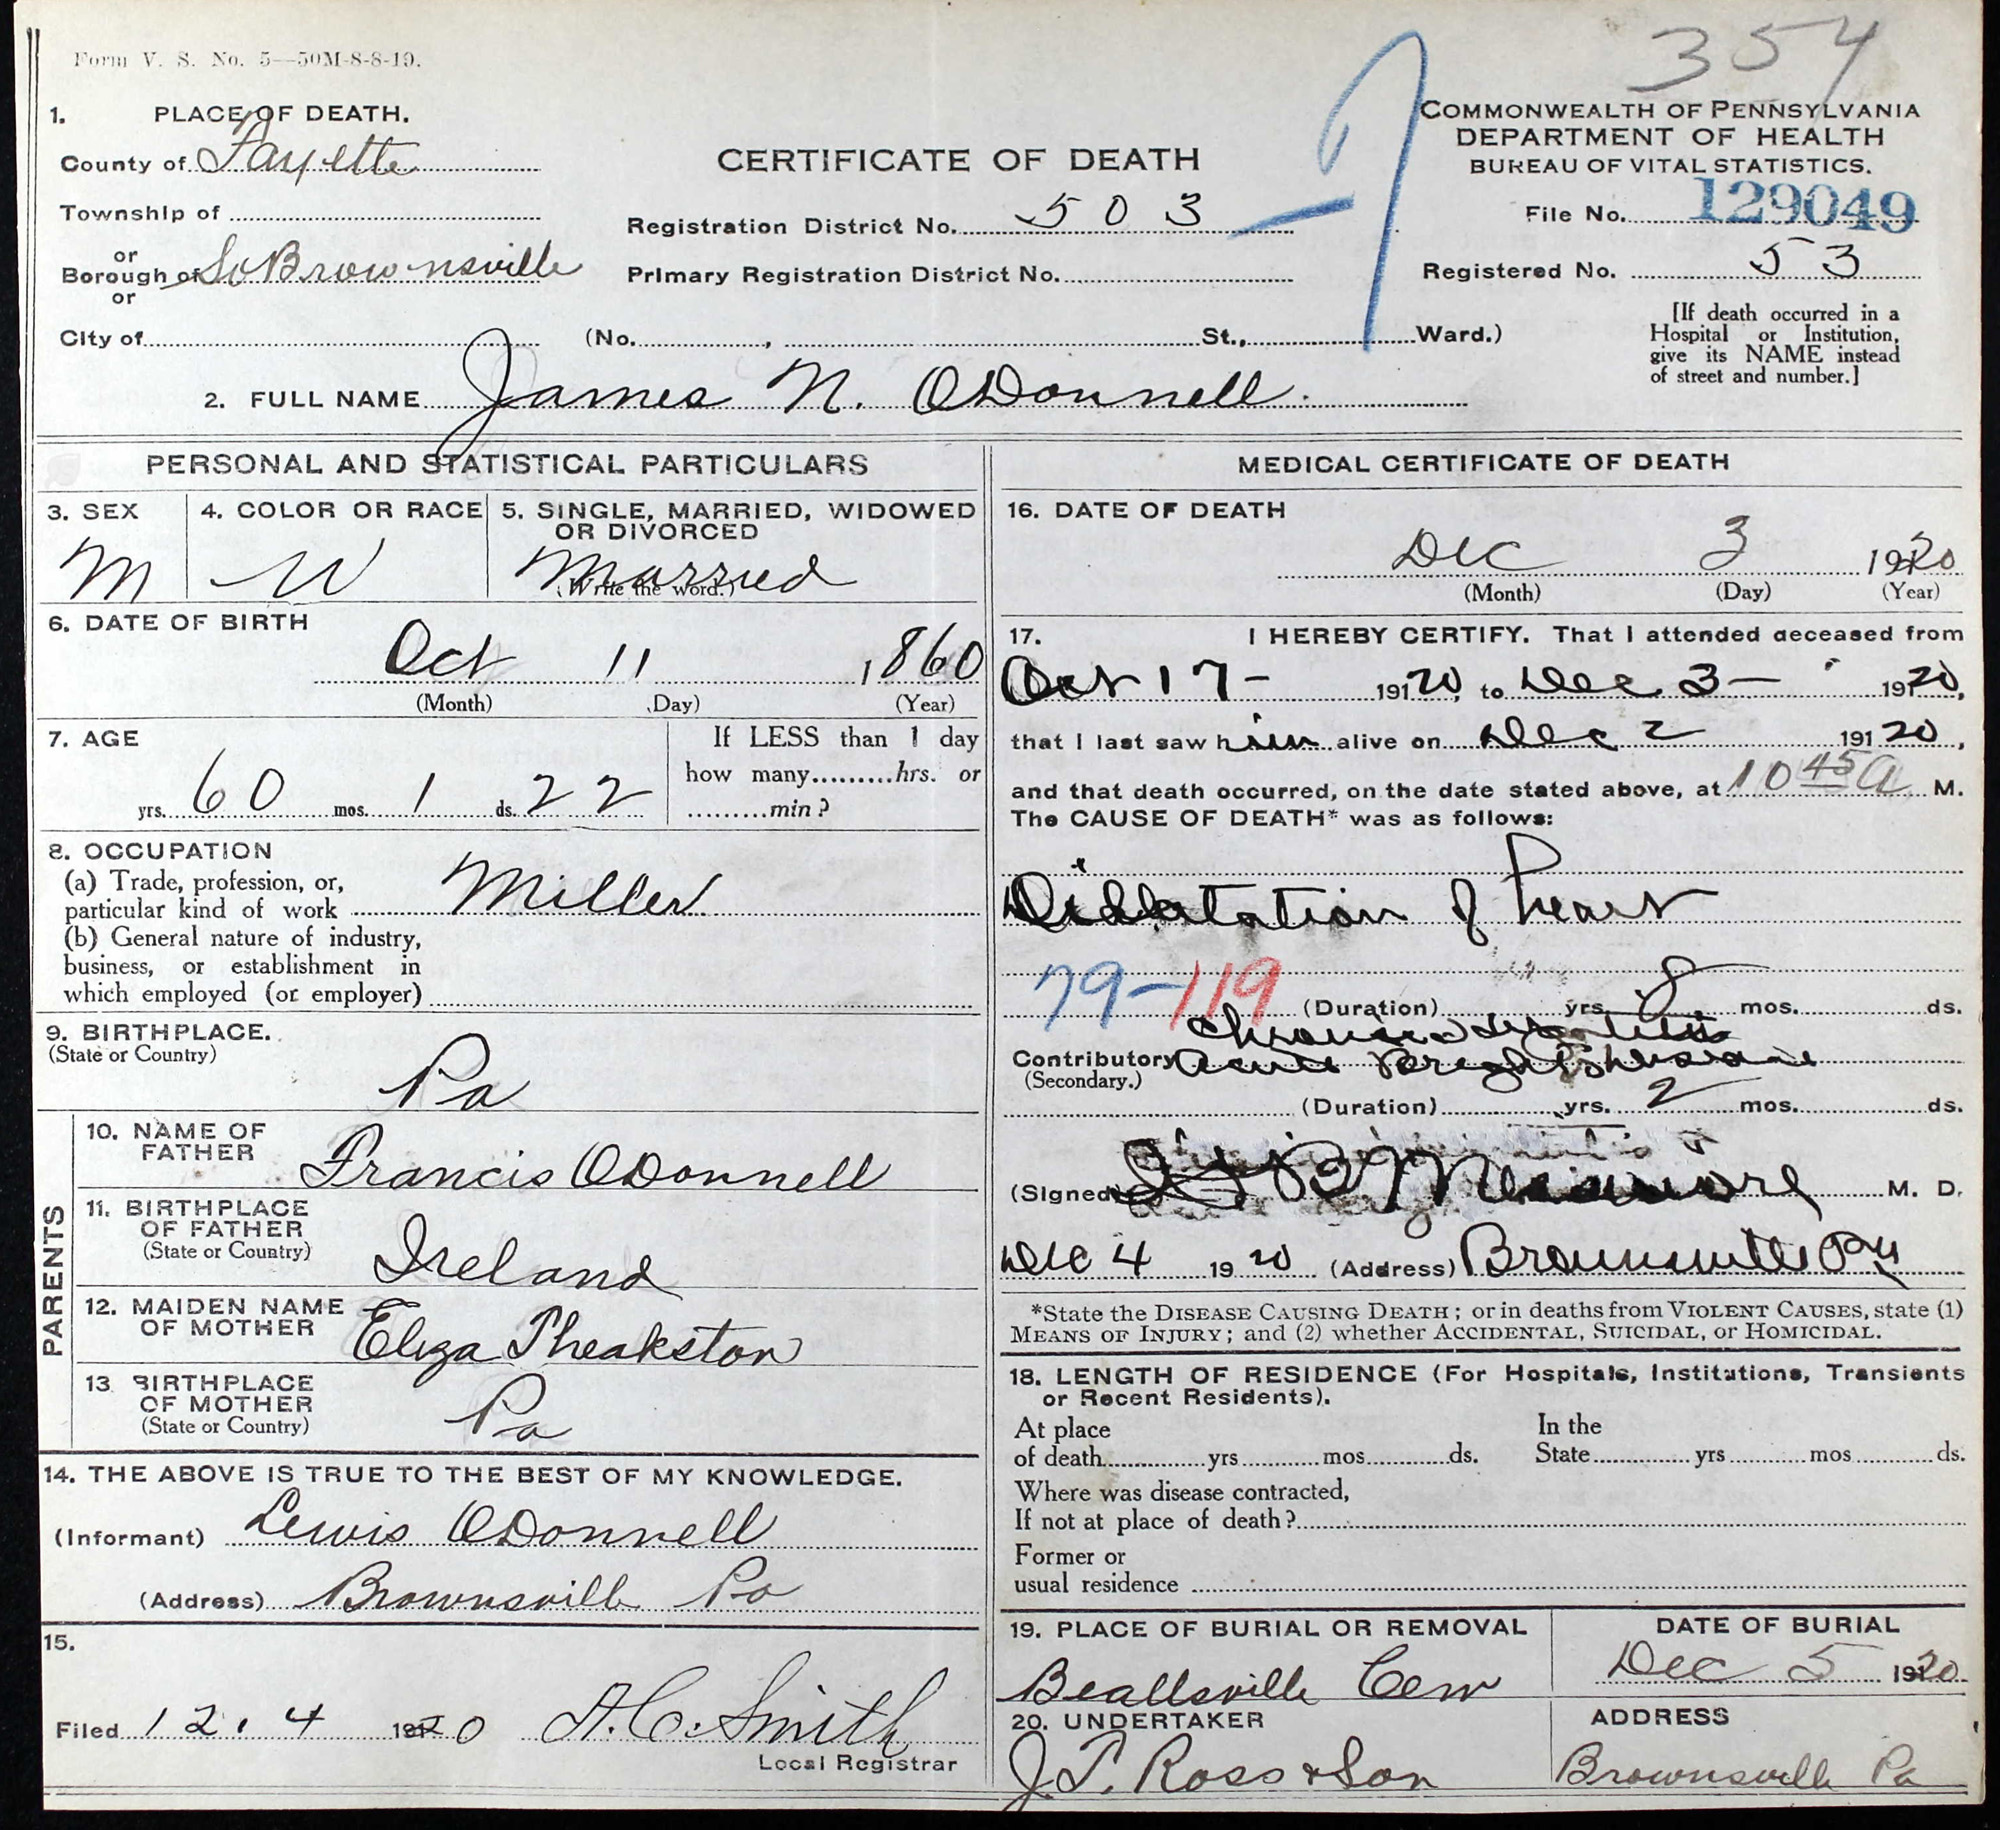 354
Form V. S. No. 5—50M-8-8-19.
1. PLACE OF DEATH.
County of Fayette
Township of
or
Borough of So Brownsville
or
City of
CERTIFICATE OF DEATH
Registration District No. 503
Primary Registration District No.
(No. , St., Ward.)
COMMONWEALTH OF PENNSYLVANIA
DEPARTMENT OF HEALTH
BUREAU OF VITAL STATISTICS.
File No. 129049
Registered No. 53
[If death occurred in a
Hospital or Institution,
give its NAME instead
of street and number.]
2. FULL NAME James N. ODonnell.
PERSONAL AND STATISTICAL PARTICULARS
3. SEX
M
4. COLOR OR RACE
W
5. SINGLE, MARRIED, WIDOWED
OR DIVORCED
Married
(Write the word.)
6. DATE OF BIRTH
Oct 11 1860
(Month) (Day) (Year)
7. AGE
yrs. 60 mos. 1 ds. 22
If LESS than 1 day
how many.........hrs. or
.........min?
8. OCCUPATION
(a) Trade, profession, or,
particular kind of work Miller
(b) General nature of industry,
business, or establishment in
which employed (or employer)
9. BIRTHPLACE.
(State or Country)
Pa
PARENTS
10. NAME OF
FATHER
Francis ODonnell
11. BIRTHPLACE
OF FATHER
(State or Country)
Ireland
12. MAIDEN NAME
OF MOTHER
Eliza Theakston
13 BIRTHPLACE
OF MOTHER
(State or Country)
Pa
14. THE ABOVE IS TRUE TO THE BEST OF MY KNOWLEDGE.
(Informant) Lewis ODonnell
(Address) Brownsville Pa
15.
Filed 12.4 1920
Smith
Local Registrar
MEDICAL CERTIFICATE OF DEATH
16. DATE OF DEATH
Dec 3 1920
(Month) (Day) (Year)
17. I HEREBY CERTIFY. That I attended deceased from
Oct 17 - 19120, to Dec 3 - 19120,
that I last saw him alive on Dec 2 19120,
and that death occurred, on the date stated above, at 10 45 a M.
The CAUSE OF DEATH* was as follows:
of heart
79-119
(Duration) yrs. 8 mos. ds.
Chronic
Contributory Acute Brights disease
(Secondary.)
(Duration) yrs. 2 mos. ds.
(Signed) M. D.
Dec 4 1920 (Address) Brownsville Pa
*State the DISEASE CAUSING DEATH; or in deaths from VIOLENT CAUSES, state (1)
MEANS OF INJURY; and (2) whether ACCIDENTAL, SUICIDAL, or HOMICIDAL.
18. LENGTH OF RESIDENCE (For Hospitals, Institutions, Transients
or Recent Residents).
At place
of death yrs mos ds.
In the
State yrs mos ds.
Where was disease contracted,
If not at place of death?
Former or
usual residence
19. PLACE OF BURIAL OR REMOVAL
Beallsville Cem
DATE OF BURIAL
Dec 5 1920
20. UNDERTAKER
J. T. Ross & Son
ADDRESS
Brownsville Pa